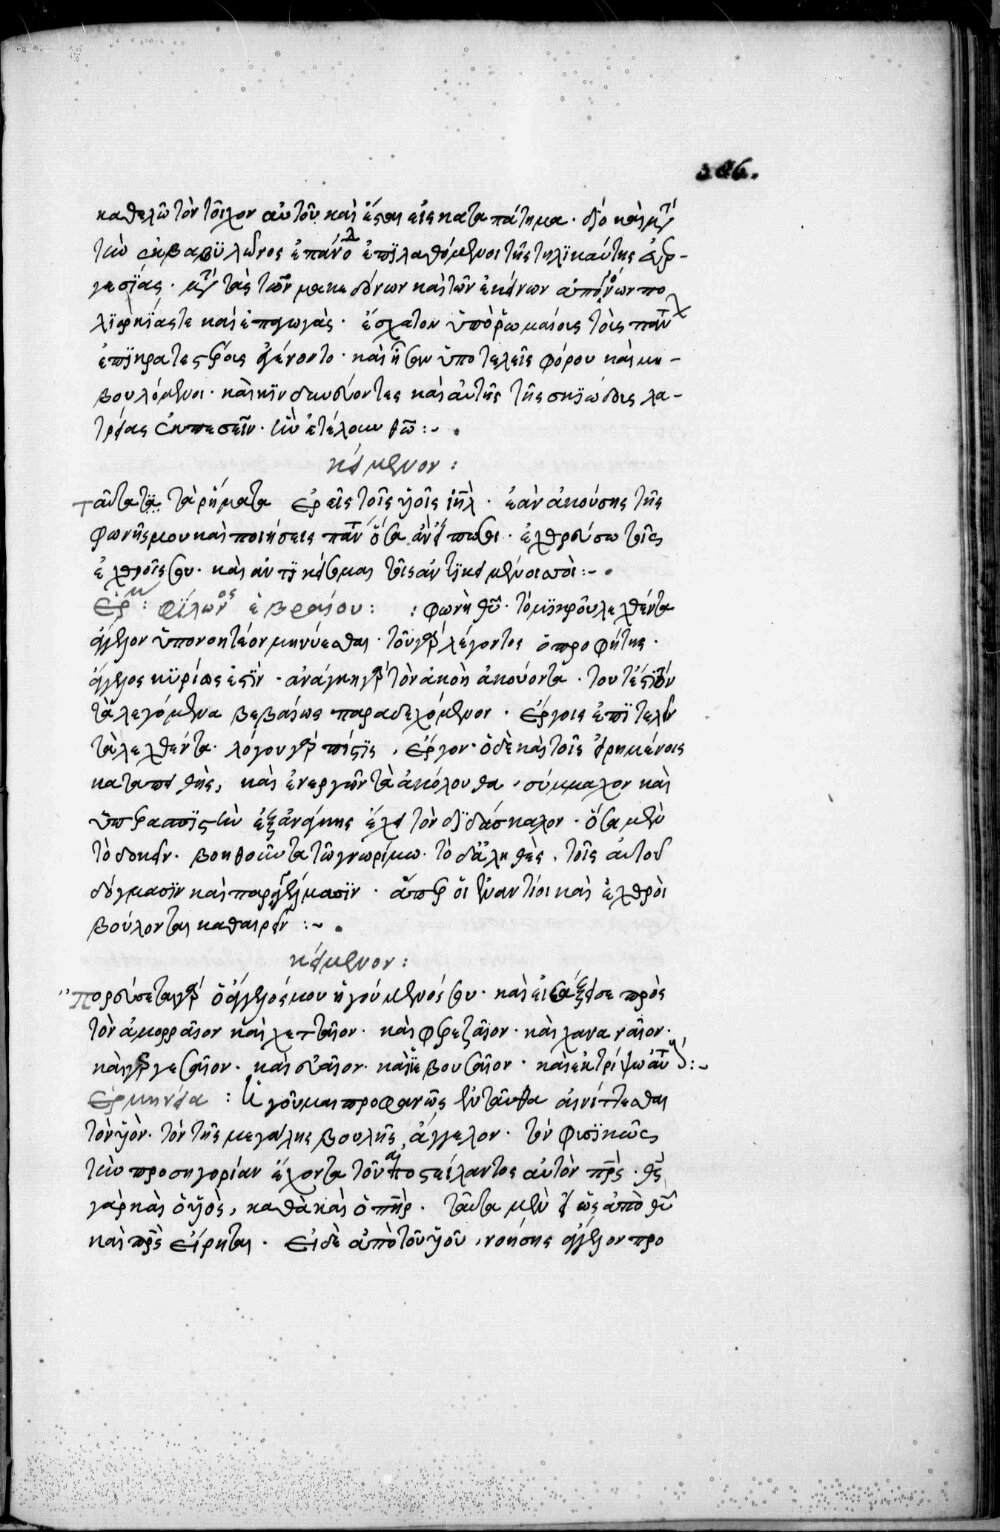 306.
καθελῶ τὸν τοῖχον αὐτοῦ καὶ ἔσται εἰς καταπάτημα. διὸ καὶ μετὰ
τὴν ἐκ βαβυλῶνος ἐπάνοδον ἐπιλαθόμενοι τῆς τηλικαύτης εὐερ-
γεσίας. μετὰ τὰς τῶν μακεδόνων καὶ τῶν ἐκείνων ἀπογόνων πο
λιορκίας τε καὶ ἐπαγωγὰς. ἔσχατον ὑπὸ ῥωμαίοις τοῖς παντ
ἐπικρατεστέροις ἐγένοντο. καὶ ἦσαν ὑποτελεῖς φόρου καὶ μὴ
βουλόμενοι. καὶ κινδυνεύοντες καὶ αὐτῆς τῆς σκιώδους λα-
τρείας ἐκπεσεῖν. ἣν ἐτέλουν θῶ :-.
κείμενον :
ταῦτα τὰ ῥήματα ἐρεῖς τοῖς υἱοῖς ἰηλ. ἐὰν ἀκούσης τῆς
φωνῆς μου καὶ ποιήσεις παντ ὅσα ἂν εἴπω σοι. ἐχθρεύσω τοῖς
ἐχθροῖς σου. καὶ ἀντικείσομαι τοῖς ἀντικειμένοις σοι :-.
Ερμ : φίλωνος ἑβραίου : : φωνὴ θυ. τὸ μικρῶ λεχθέντα
ἄγγελον ὑπονοητέον μηνύεσθαι. τοῦ γὰρ λέγοντος ὁ προφήτης.
ἄγγελος κυρίως ἐστίν. ἀνάγκη γὰρ τὸν ἀκοῆ ἀκούοντα. τουτέστι τὸν
τὰ λεγόμενα βεβαίως παραδεχόμενον. ἔργοις ἐπιτελεῖν
τὰ λεχθέντα. λόγου γὰρ πίστις, ἔργον. ὁ δὲ καὶ τοῖς εἰρημένοις
καταπειθὴς, καὶ ἐνεργῶν τὰ ἀκόλουθα, σύμμαχον καὶ
ὑπερασπιστὴν ἐξ ἀνάγκης ἔχει τὸν διδάσκαλον. ὅσα μὲν
τὸ δοκεῖν. βοηθοῦντα τῶ γνωρίμω. τὸ δ' ἀληθὲς, τοῖς αὐτοῦ
δόγμασιν καὶ παραγγέλμασιν. ἅπερ οἱ ἐναντίοι καὶ ἐχθροὶ
βούλονται καθαιρεῖν :-.
κείμενον :
πορεύσεται γὰρ ὁ ἄγγελός μου ἡγούμενός σου. καὶ εἰσάξει σε πρὸς
τὸν ἀμορραῖον καὶ χετταῖον. καὶ φερεζαῖον. καὶ χαναναῖον.
καὶ γεργεσαῖον. καὶ εὐαῖον. καὶ ἰεβουσαῖον. καὶ ἐκτρίψω αὐτούς :-
Ερμηνεία : ἡγοῦμαι προφανῶς ἐνταῦθα αἰνίττεσθαι
τὸν υἱὸν. τὸν τῆς μεγάλης βουλῆς ἄγγελον. τὸν φυσικῶς
τὴν προσηγορίαν ἔχοντα τοῦ ἀποστείλαντος αὐτὸν πρς. θς
γὰρ καὶ ὁ υἱὸς, καθὰ καὶ ὁ πηρ. ταῦτα μὲν ὡς ἀπὸ θυ
καὶ πρς εἴρηται. Εἰ δὲ ἀπὸ τοῦ υἱοῦ, νοήσης ἄγγελον προ